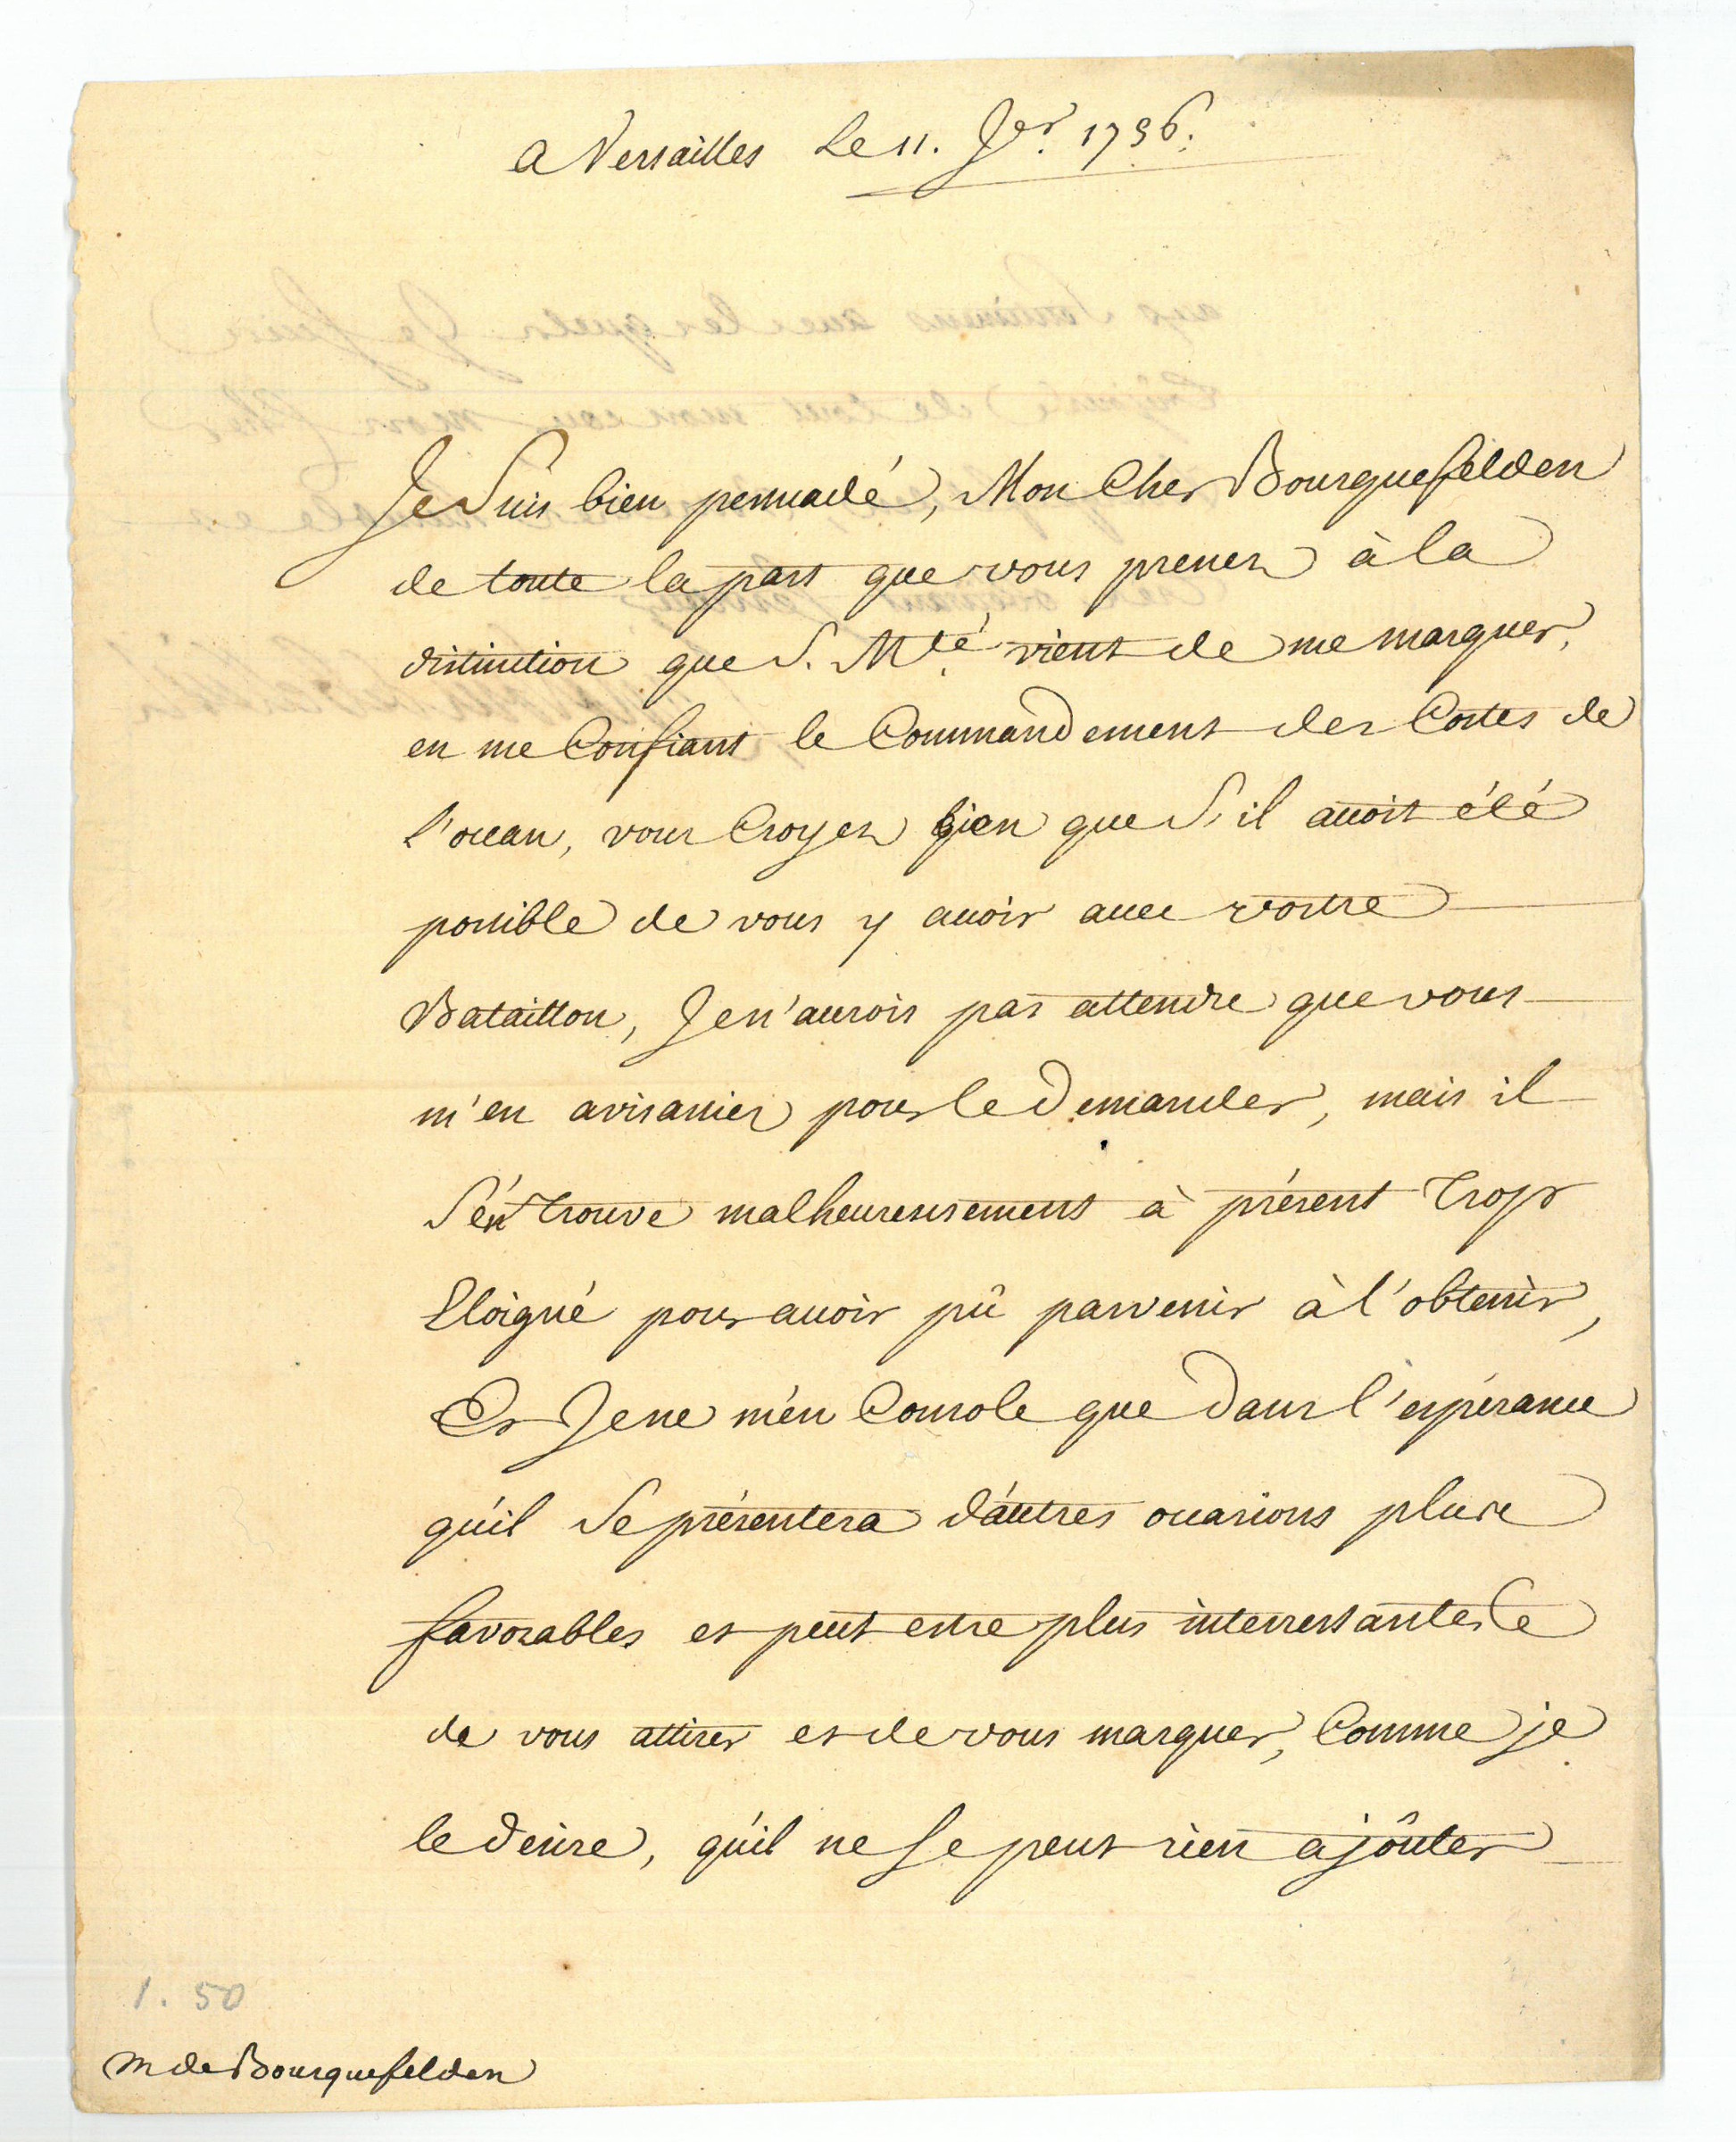 a Versailles Le 11. Jer. 1756.
Je Suis bien persuadé, Mon Cher Bourquefelden
de toute la part que vous prenez à la
distinction que S. Mté. vient de me marquer,
en me Confiant le Commandement des Costes de
l'ocean, vous Croyez bien que S'il auoit été
possible de vous y auoir auec vostre
Bataillon, Je n'aurois pas attendre que vous
m'en avisassiez pour le Demander, mais il
S'én trouve malheureusement à présent trop
Eloigné pour auoir pû parvenir à l'obtenir,
Et Je ne m'én Console que dans l'espérance
qu'il Se présentera d'áutres ocasions plus
favorables et peut estre plus interressantes
de vous attirer et de vous marquer, Comme je
le desire, qu'il ne Se peut rien ajôuter
1.50
M de Bourquefelden